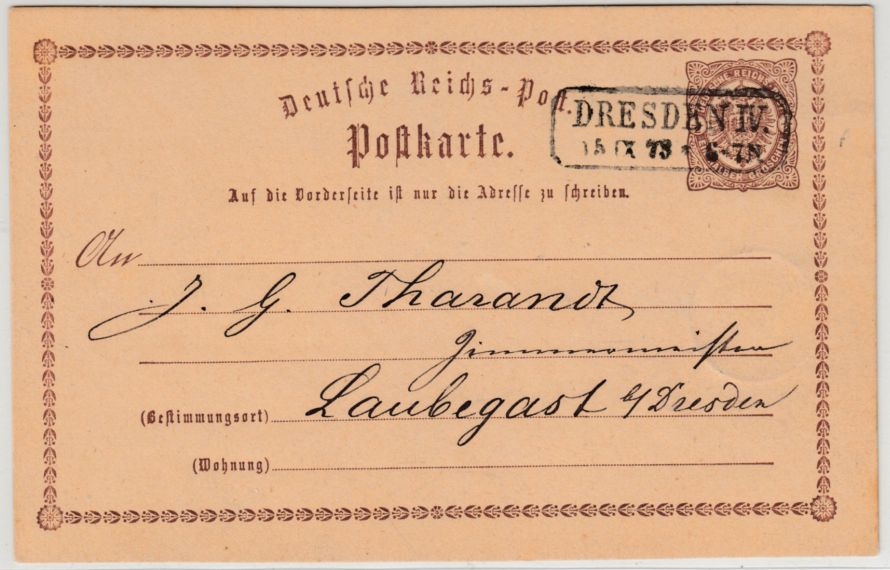 Deutsche Reichs-Post.
DRESDEN IV.
15 IX 73 6-7N
Postkarte.
Auf die Vorderseite ist nur die Adresse zu schreiben.
An
J. G. Tharandt
Zimmermeister
(Bestimmungsort) Laubegast b/ Dresden
(Wohnung)